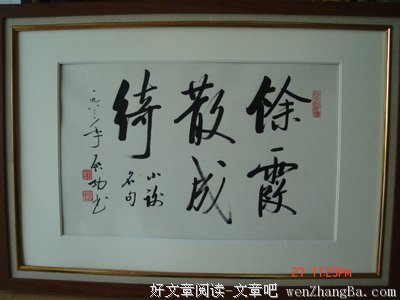 餘霞
散成
綺
小謝
名句
一九八三年 启功书
27 11:23PM
好文章阅读-文章吧 wenZhangBa.com